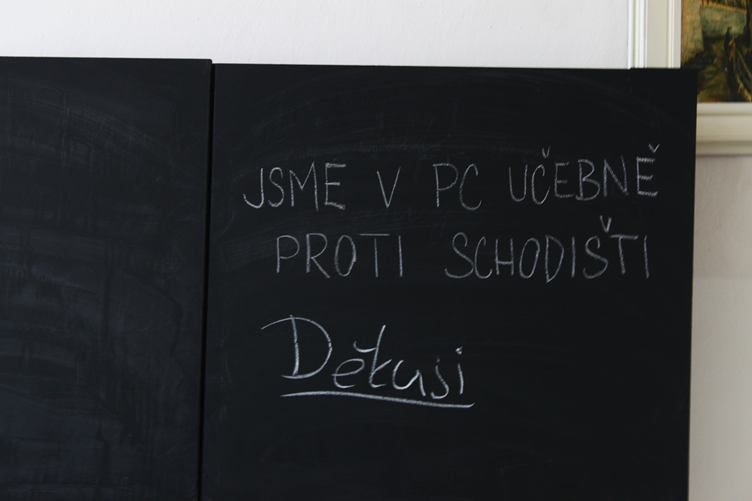 JSME V PC UČEBNĚ
PROTI SCHODIŠTI
Děkuji